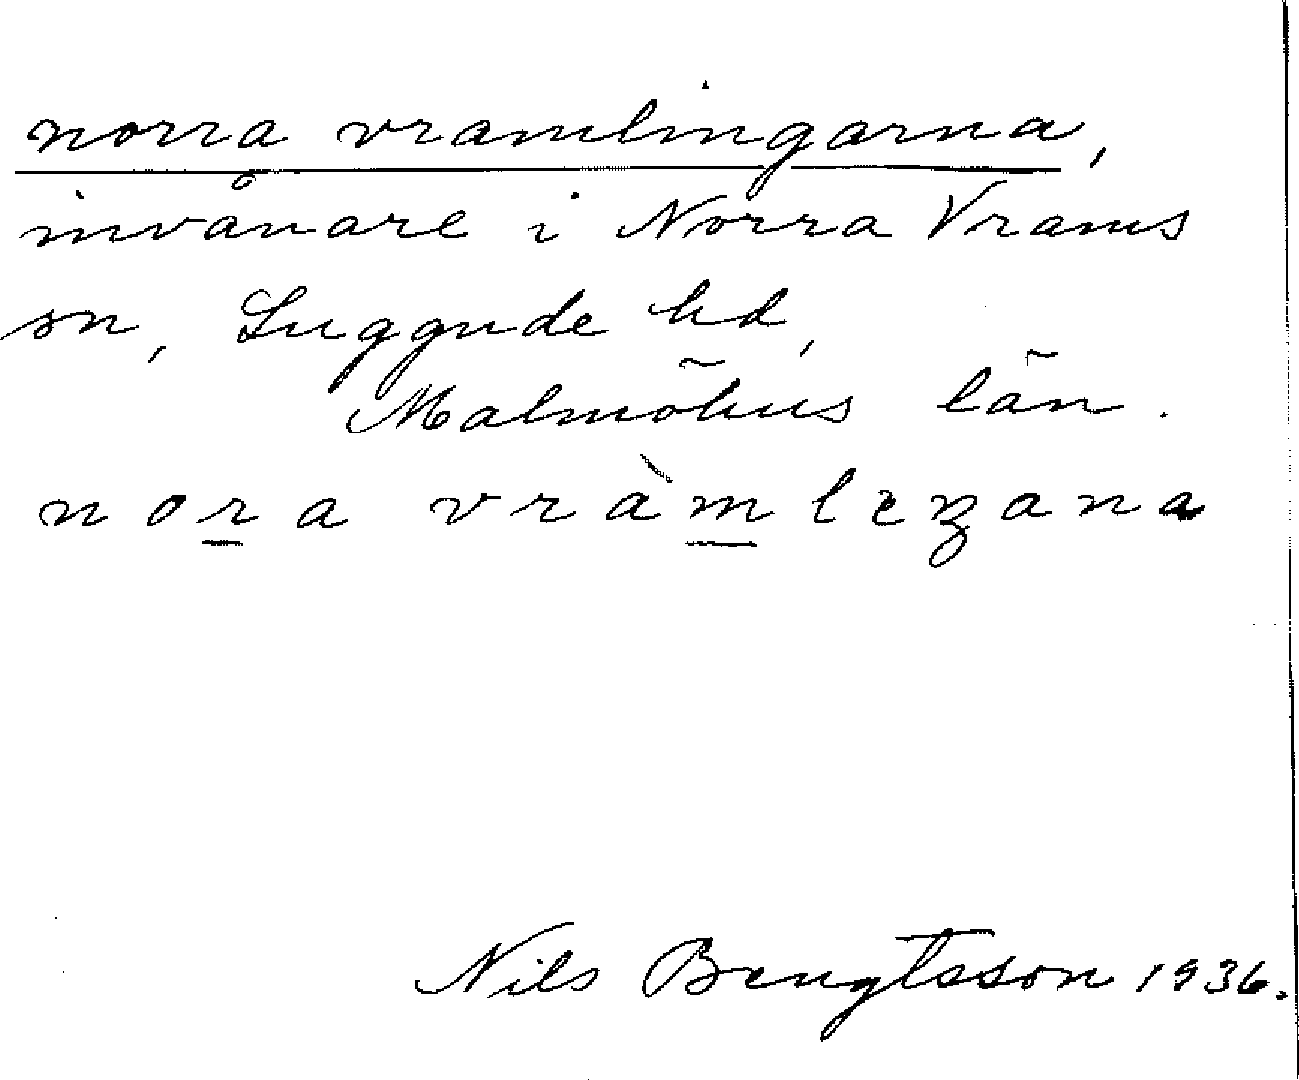 norra vramlingarna,
invånare i Norra Vrams
sn, Luggude hd,
Malmöhus län.
nora vràmlezana
Nils Bengtsson 1936.